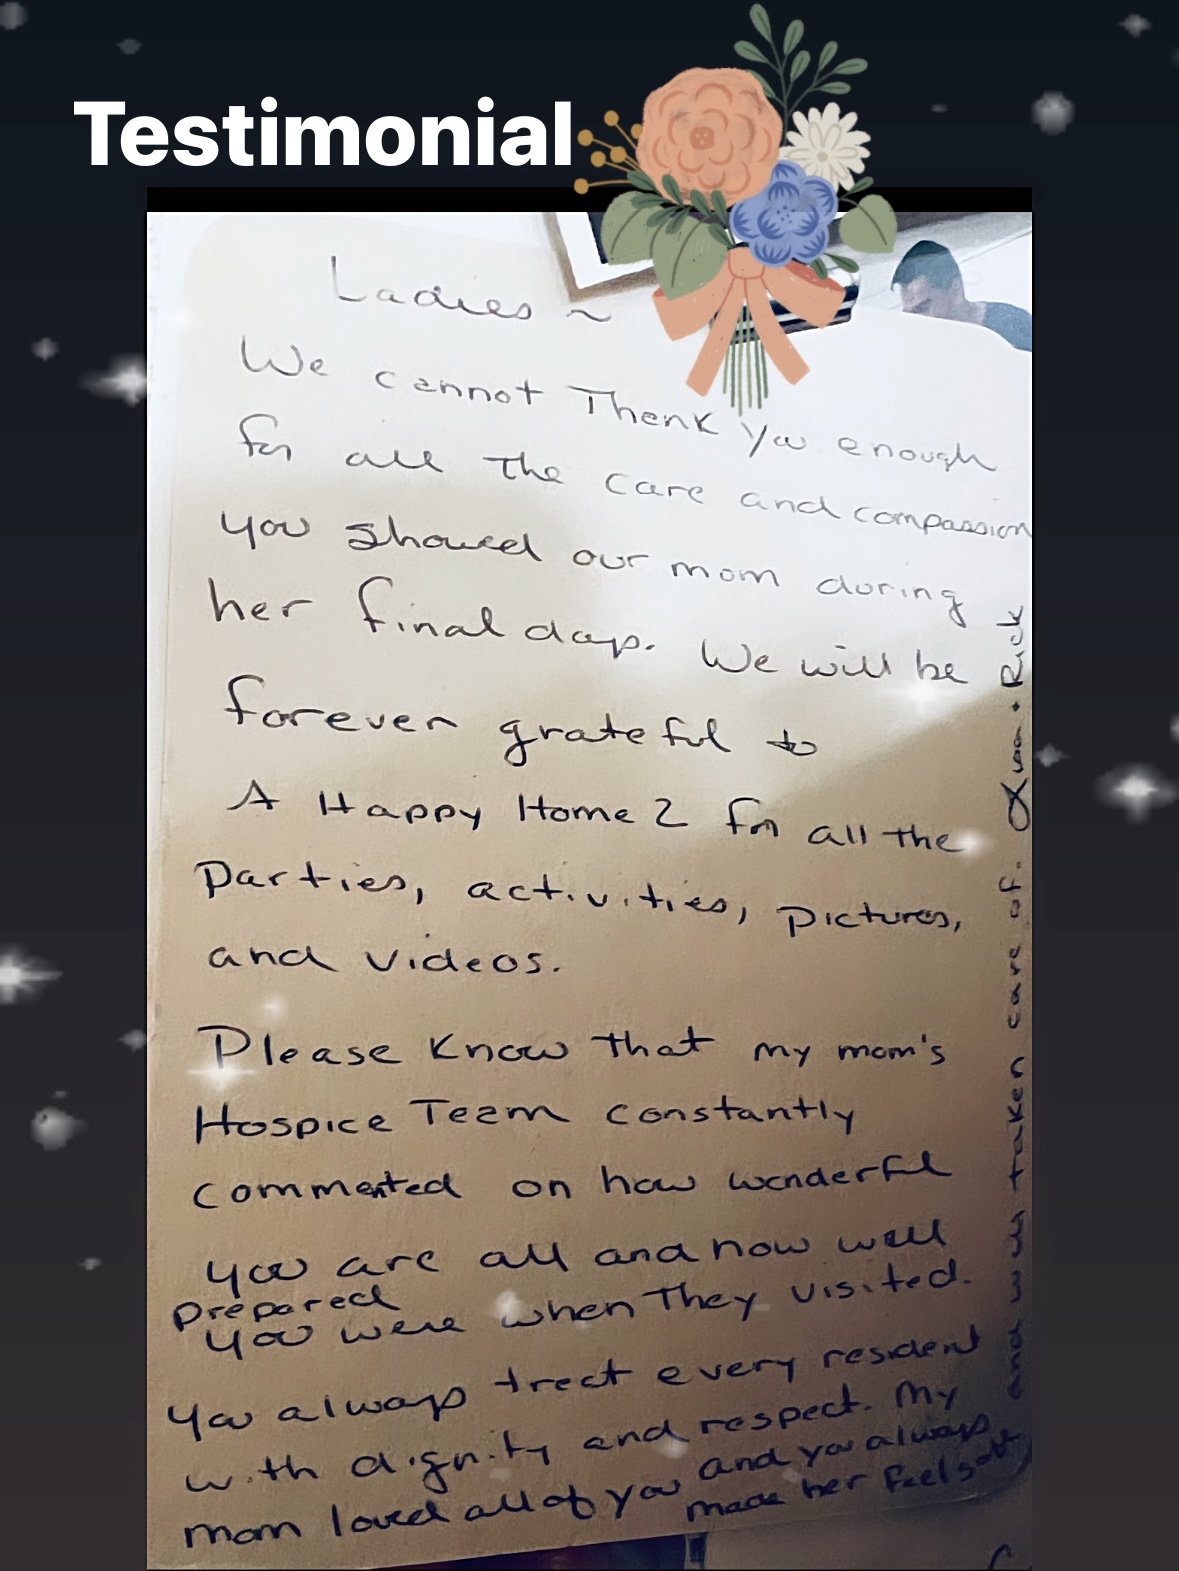 Testimonial
Ladies ~
We cannot Thank You enough
for all the care and compassion
you showed our mom during
her final days. We will be
forever grateful to
A Happy Home 2 for all the
Parties, activities, pictures,
and videos.
Please know that my mom's
Hospice Team constantly
commented on how wonderful
you are all and how well
prepared
you were when They visited.
You always treat every resident
with dignity and respect. My
mom loved all of you and you always
made her feel safe
and well taken care of. Lisa + Rick